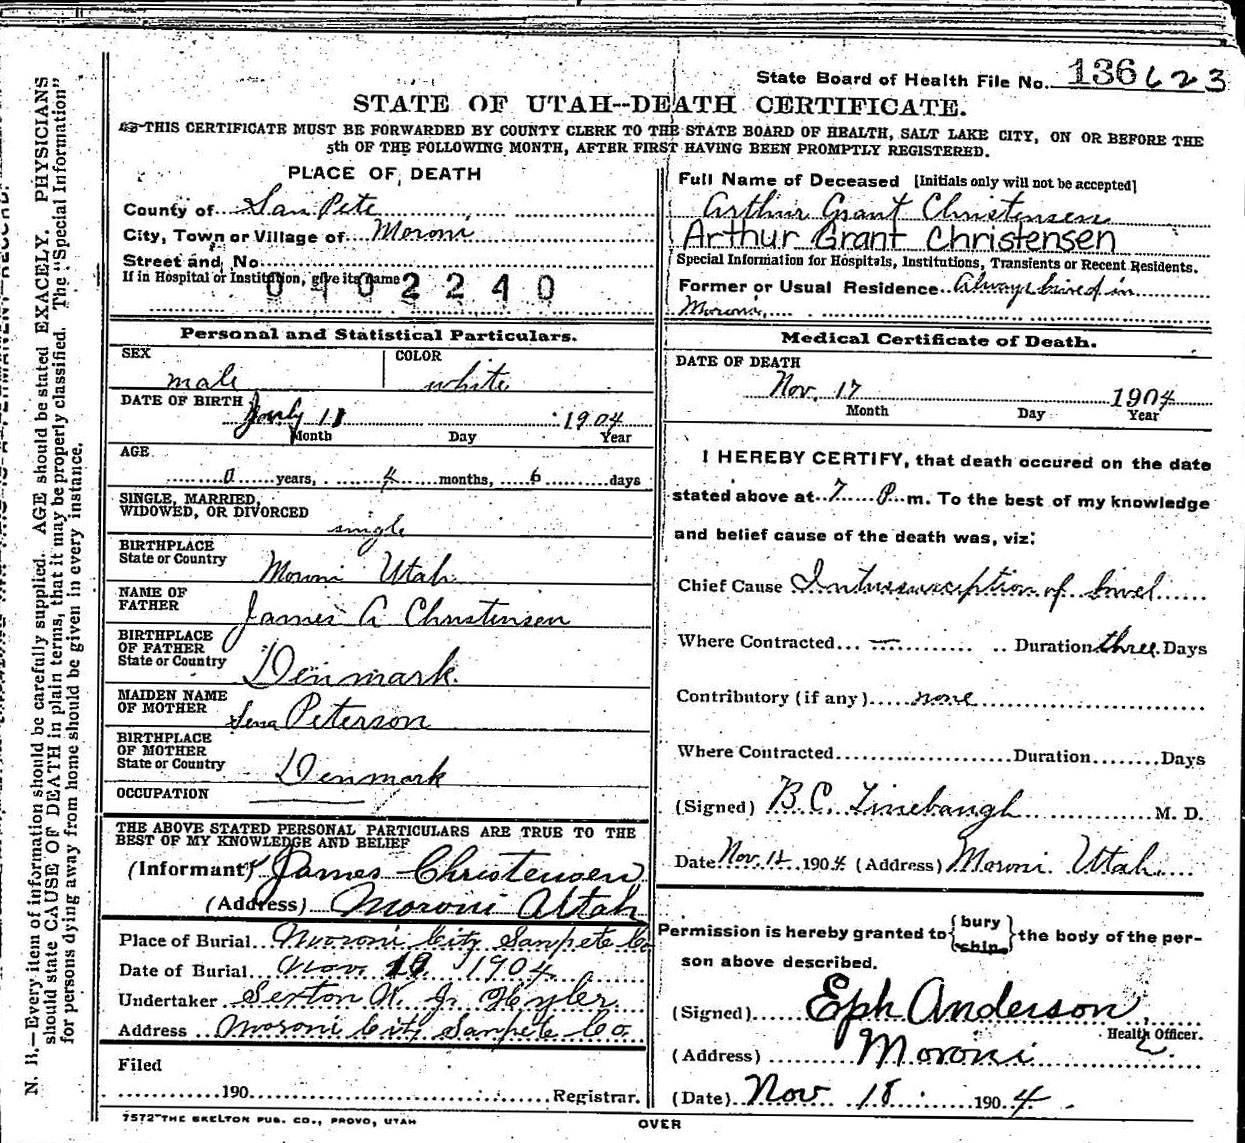 State Board of Health File No. 136 623
STATE OF UTAH--DEATH CERTIFICATE.
THIS CERTIFICATE MUST BE FORWARDED BY COUNTY CLERK TO THE STATE BOARD OF HEALTH, SALT LAKE CITY, ON OR BEFORE THE
5th OF THE FOLLOWING MONTH, AFTER FIRST HAVING BEEN PROMPTLY REGISTERED.
PLACE OF DEATH
County of San Pete
City, Town or Village of Moroni
Street and No.
If in Hospital or Institution, give its name
0402240
Full Name of Deceased [Initials only will not be accepted]
Arthur Grant Christensen
Arthur Grant Christensen
Special Information for Hospitals, Institutions, Transients or Recent Residents.
Former or Usual Residence Always lived in
Moroni
Personal and Statistical Particulars.
SEX
male
COLOR
white
DATE OF BIRTH
July 11 1904
Month Day Year
AGE
0 years, 4 months, 6 days
SINGLE, MARRIED,
WIDOWED, OR DIVORCED
single
BIRTHPLACE
State or Country
Moroni Utah
NAME OF
FATHER
James A Christensen
BIRTHPLACE
OF FATHER
State or Country
Denmark.
MAIDEN NAME
OF MOTHER
Sena Peterson
BIRTHPLACE
OF MOTHER
State or Country
Denmark
OCCUPATION
THE ABOVE STATED PERSONAL PARTICULARS ARE TRUE TO THE
BEST OF MY KNOWLEDGE AND BELIEF
(Informant) James Christensen
(Address) Moroni Utah
Place of Burial Moroni City Sanpete Co
Date of Burial Nov 19 1904
Undertaker Sexton W. J. Hyler
Address Moroni City Sanpete Co
Filed
190 Registrar.
Medical Certificate of Death.
DATE OF DEATH
Nov. 17 1904
Month Day Year
I HEREBY CERTIFY, that death occured on the date
stated above at 7 P. m. To the best of my knowledge
and belief cause of the death was, viz:
Chief Cause Intussusception of bowel
Where Contracted — Duration three Days
Contributory (if any) none
Where Contracted Duration Days
(Signed) B.C. Linebaugh M. D.
Date Nov. 1904 (Address) Moroni Utah
Permission is hereby granted to {bury
ship} the body of the per-
son above described.
(Signed) Eph Anderson
Health Officer.
(Address) Moroni
(Date) Nov 18 1904
7572 THE SKELTON PUB. CO., PROVO, UTAH
OVER
N. B.—Every item of information should be carefully supplied. AGE should be stated EXACELY. PHYSICIANS
should state CAUSE OF DEATH in plain terms, that it may be properly classified. The "Special Information"
for persons dying away from home should be given in every instance.